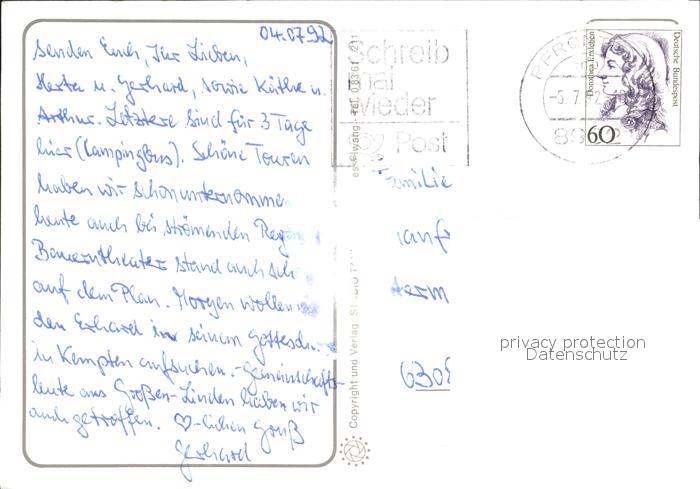 04.07.92
Senden Euch, Ihr Lieben,
Herta u. Gerhard, sowie Käthe u.
Arthur. Letztere sind für 3 Tage
hier (Campingbus). Schöne Touren
haben wir schon unternomme
heute auch bei strömenden Reg
Bauerntheater stand auch sch
auf dem Plan. Morgen wollen
den Erhard in seinem Gottesd
in Kempten aufsuchen. - Gemeinschafts-
leute aus Großen-Linden haben wir
auch getroffen. ♡-lichen Gruß
Gerhard
Schreib
mal
wieder
Post
Tel. 08361
Copyright und Verlag:
-5.7.
60
Dorothea Erxleben
Deutsche Bundespost
Familie
630
privacy protection
Datenschutz